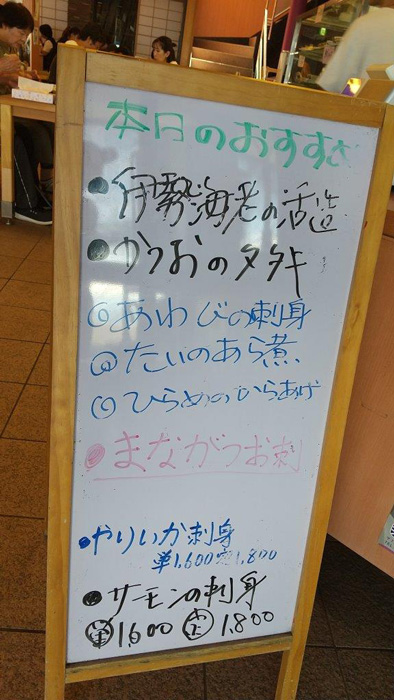 本日のおすすめ
●伊勢海老の活造
●かつおのタタキ
◎あわびの刺身
◎たいのあら煮
◎ひらめのからあげ
●まながつお刺
●やりいか刺身
単1,600 定1,800
●サーモンの刺身
単1600 定1,800